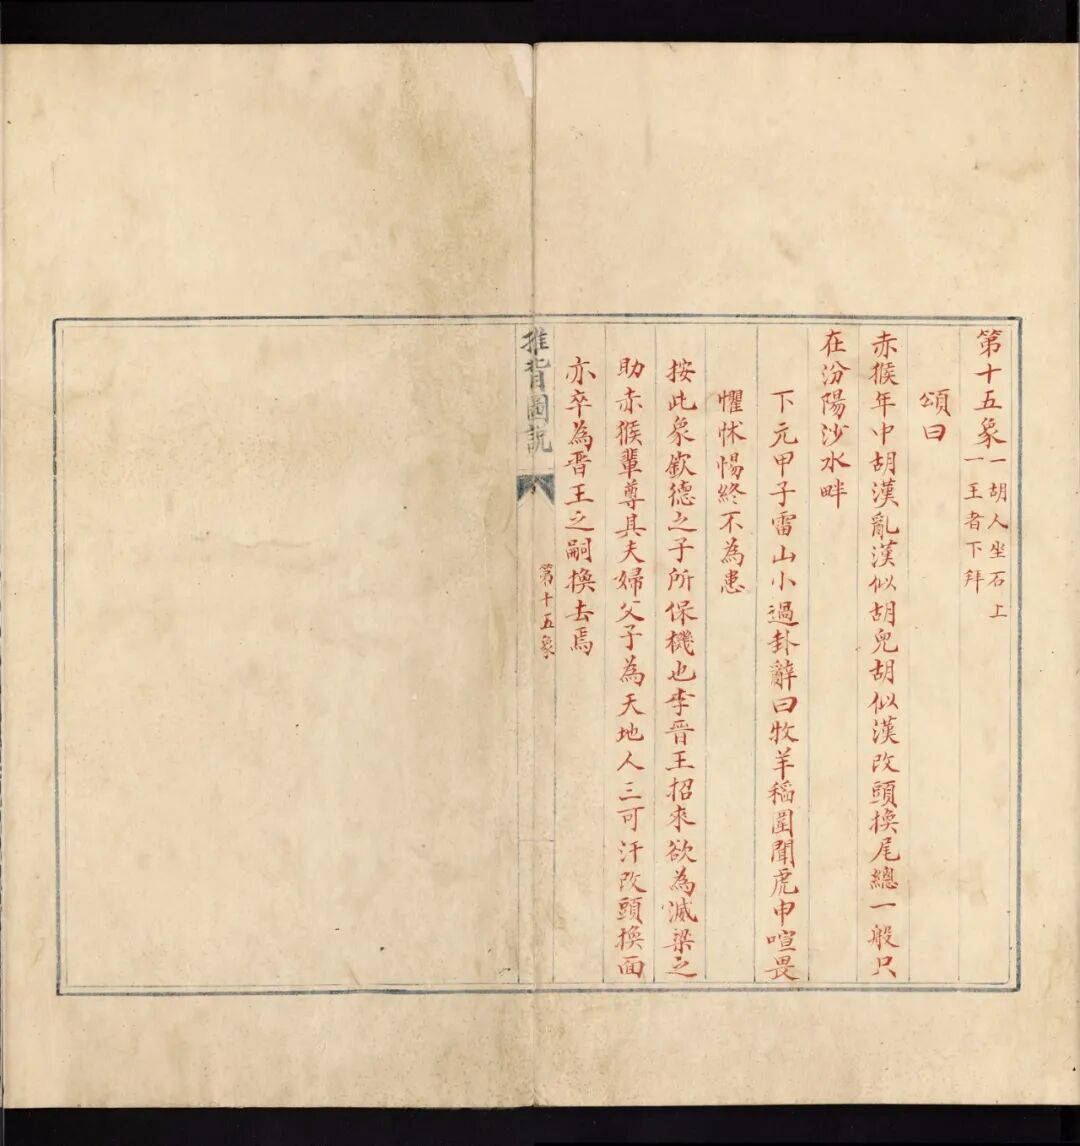 第十五象 一胡人坐石上
一王者下拜
頌曰
赤猴年中胡漢亂漢似胡兒胡似漢改頭換尾總一般只
在汾陽沙水畔
下元甲子雷山小過卦辭曰牧羊稲圍聞虎申喧畏
懼怵惕終不為患
按此象欽德之子所保機也李晉王招來欲為滅梁之
助赤猴輩尊其夫婦父子為天地人三可汗改頭換面
亦卒為晋王之嗣換去焉
推背圖說
第十五象